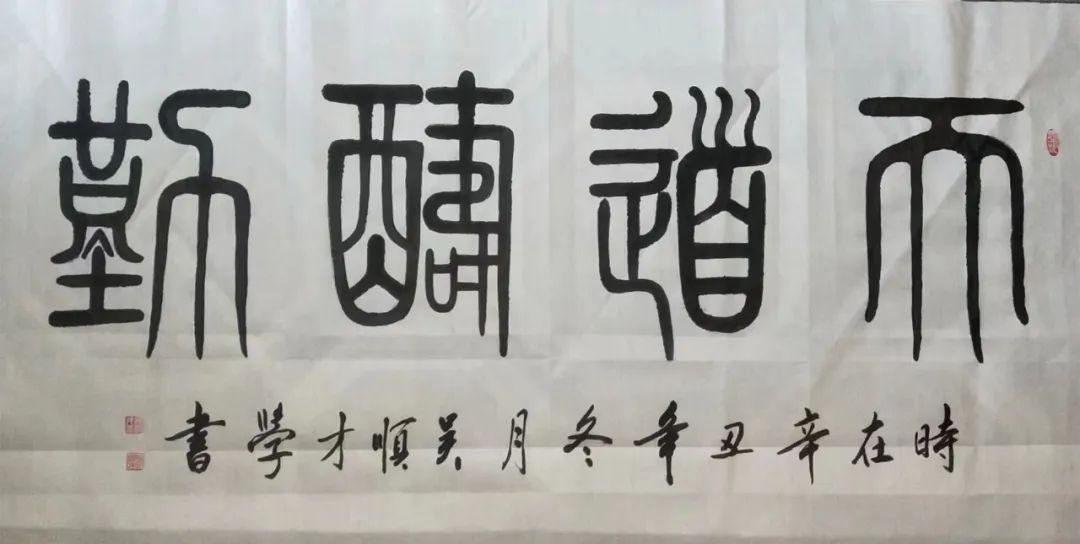 天道酬勤
時在辛丑年冬月吳順才學書